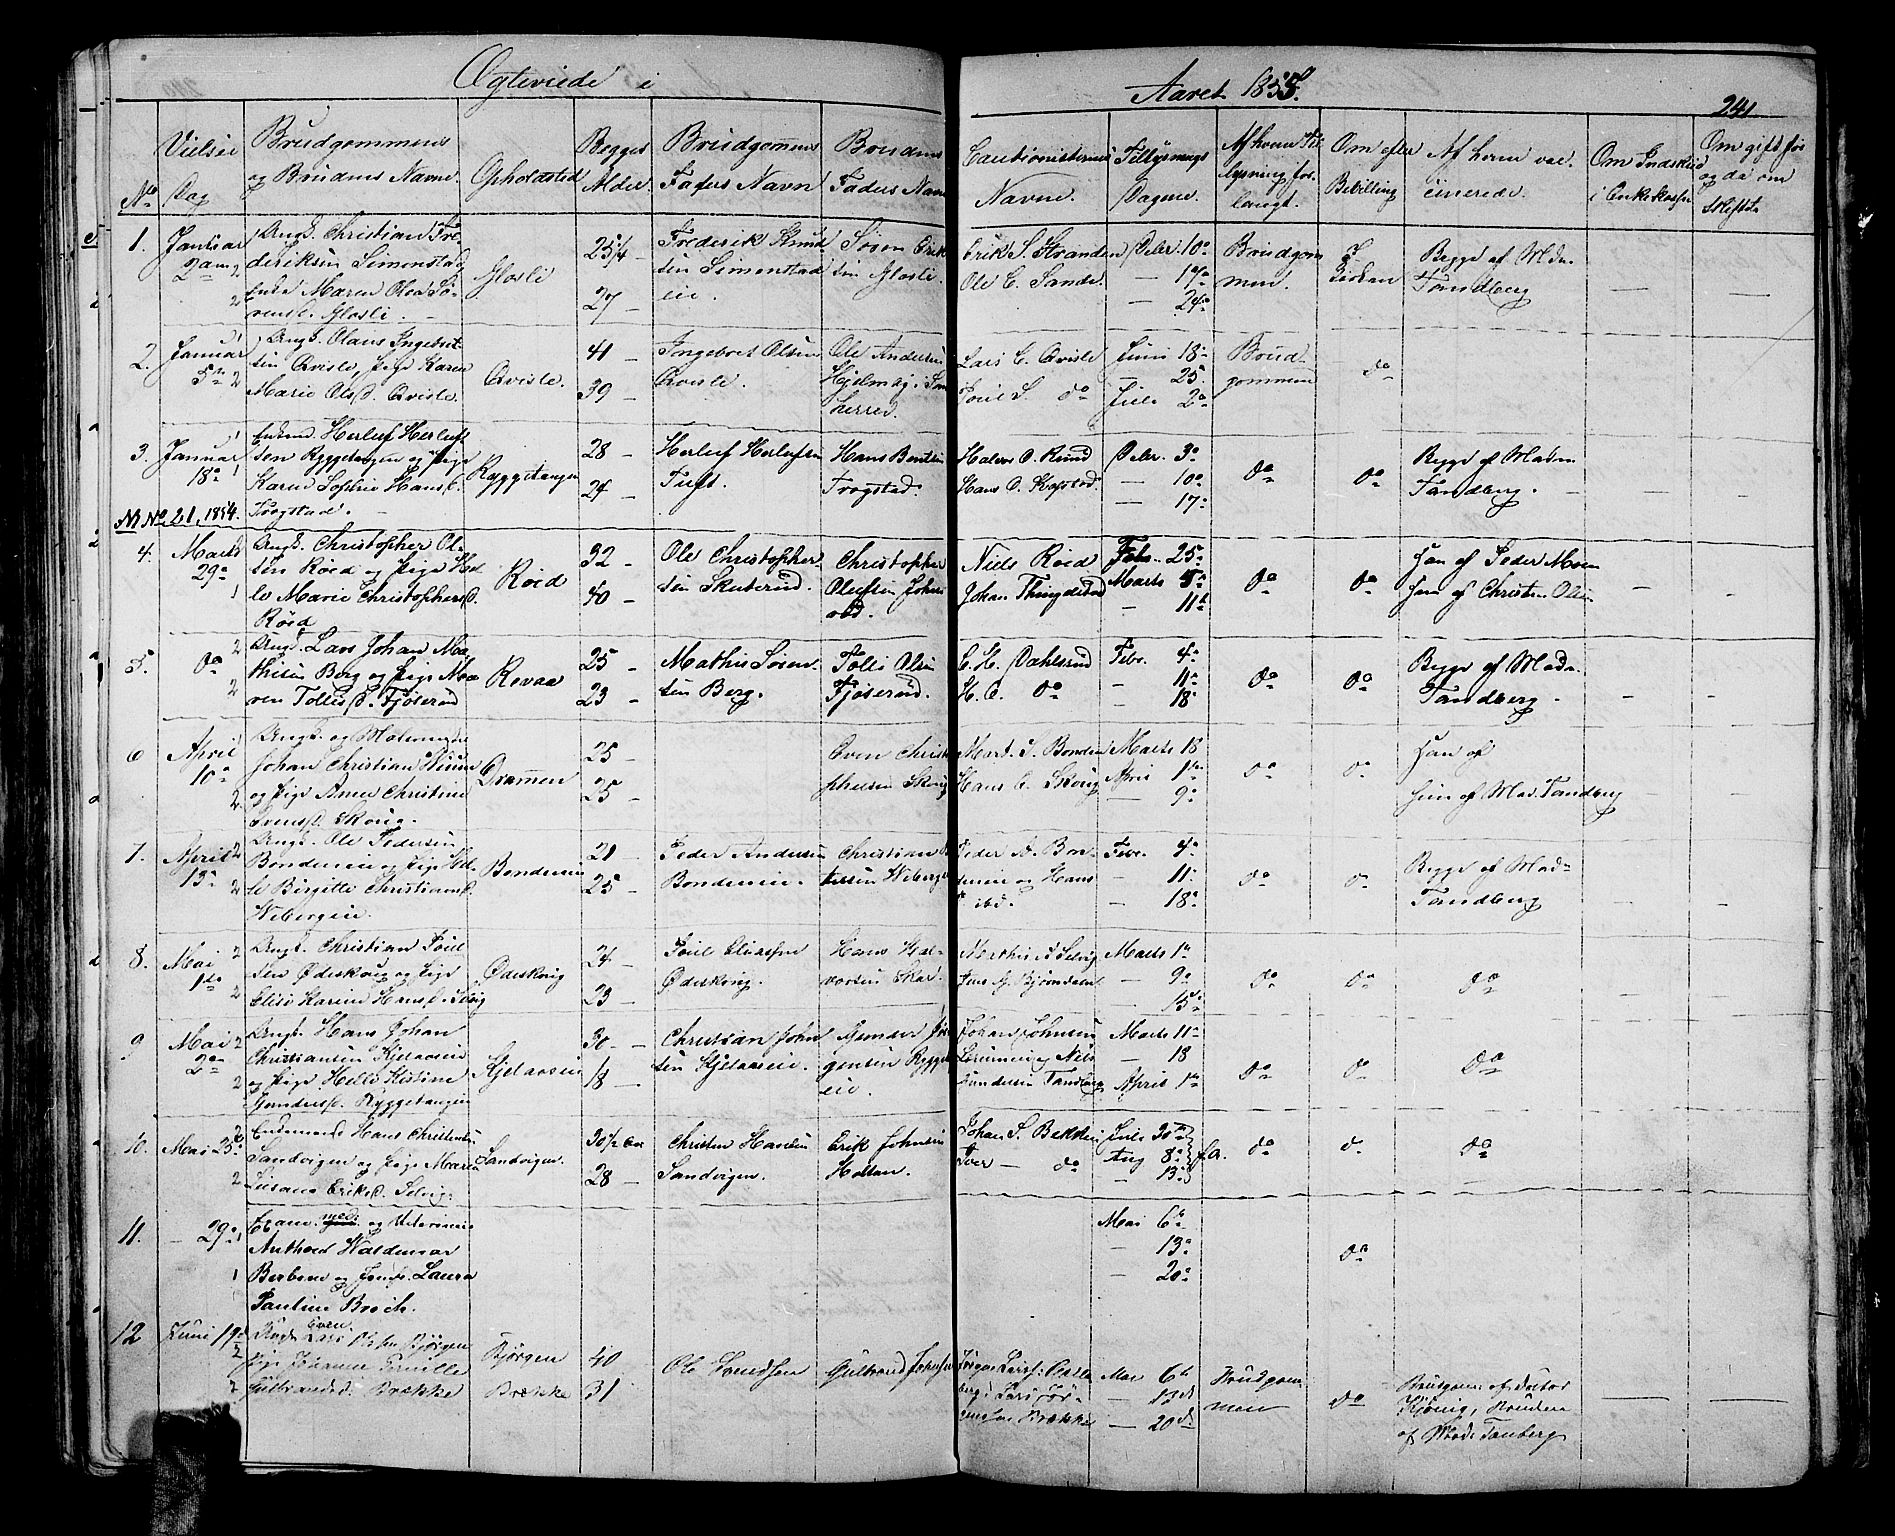 Ægteviede i Aaret 1855.
241
No
Vielses Dag
Brudgommens og Brudens Navne.
Opholdsted
Begges Alder
Brudgommens Faders Navn
Brudens Faders Navn
Cautionisternes Navne.
Tillysnings Dagene.
Af hvem Tillysning forlangt.
Om efter Bevilling
Af hvem vaccinerede.
Om Indskud i Enkekassen
Om gift før og da om Skifte
1. Januar 2den
Ungk. Christian Frederiksen Simonstad
Enke Maren Olea Sørensd. Glosli.
Glosli
25 1/4 –
27 –
Frederik Knudsen Simonstad eie.
Søren Eriksen Glosli.
Erik S. Stranden
Ole C. Sande.
Debr. 10de
– 17de
– 24de
Brudgommen.
I Kirken
Begge af Mdm Tandberg
2. Januar 5te
Ungk. Olaus Ingebretsen Qvisle, Pige Karen Marie Olsd. Qvisle.
Qvisle.
41 –
39 –
Ingebret Olsen Qvisle.
Ole Andersen
Lars C. Qvisle
Poul S. do
Juni 18de
– 25.
Juli 2de
Brudgommen
do
3. Januar 18de
Enkem. Herluf Herlufsen Ryggetangen og Pige Karen Sophie Hansd. Frogstad.
Ryggetangen
28 –
24 –
Herluf Herlufsen Tuft.
Hans Bentsen Frogstad.
Halvor O. Ruud
Hans O. Kopstad.
Debr. 3de
– 10de
– 17de
do
do
Begge af Madm Tandberg.
N No 21, 1854.
4. Marts 29de
Ungk. Christopher Olsen Røed og Pige Helle Marie Christophersd. Røed
Røed
32 –
40 –
Ole Christophersen Skuterud.
Christopher Olufsen Johnsrud.
Niels Røed
Johan Thingelstad
Febr. 25de
Marts 5te
– 11te
do
do
Han af Peder Moen
Hun af Christen Olsen
5. do
Ungk. Lars Johan Mathisen Berg og Pige Maren Tollesd. Fjøserud
Revaa
25 –
23 –
Mathis Sørensen Berg.
Tolle Olsen Fjøserud.
C. H. Dahlsrud
H. C. do
Febr. 4de
– 11te
– 18
do
do
Begge af Madm Tandberg.
6 April 10de
Johan Christian
og Pige Anne Christine Evensd. Skoug.
Drammen
25 –
25 –
Even Christophersen Skoug
Mart. S. Bonden
Hans C. Skoug
Marts 18
April 1ste
– 9de
do
do
Han af
Hun af Mad. Tandberg
7. April 13de
Ungk. Ole Pedersen Bondeneie og Pige Helle Birgitte Christiansd. Wibergeie.
Bondeneie
21 –
25 –
Peder Andersen Bondeneie.
Christian
Wibergeie
Peder A. Bondeneie og Hans ibd.
Febr. 4de
– 11te
– 18de
do
do
Begge af Madm Tandberg
8. Mai 1ste
Ungk. Christian Poulsen Ødeskoug og Pige Elise Karine Hansd. Selvig
Ødeskoug
24 –
23 –
Poul Eliassen Ødeskoug.
Hans Halvorsen Skar.
Mathis A Selvig
Jens G. Bjørndalen
Marts 1ste
– 9de
– 15de
do
do
do
9 Mai 2den
Ungk. Hans Johan Christiansen Kjelaaseie og Pige Helle Kistine Gundersd. Ryggetangen
Kjelaaseie
30 –
18 –
Christian Johnsen Kjelaaseie.
Gunder Jørgensen Ryggeeie.
Johan Johnsen
og Niels Gundersen Tandberg
Marts 11te
– 18
April 1ste
do
do
do
10. Mai 25de
Enkemand Hans Christensen Sandvigen og Pige Maren Susana Eriksd. Selvig.
Sandvigen.
30 1/2
28 –
Christen Hansen Sandvigen.
Erik Johnsen Holtan.
Johan S. Bekken
Iver – do
Juli 30te
Aug 8de
– 13de
f.A.
do
do
do
11. – 29de
Exam. med. og Veterinair Anthon Waldemar Berbom og Jomfr. Laura Pauline Broch.
Mai 6te
– 13de
– 20de
do
12 Juni 19de
Ungk. Even Lars Olsen Bjørgen
Pige Johanne Pernille Gulbrandsd. Brække
Bjørgen
Brække
40
31
Ole
Gulbrand Johnsen
Jørgen Larss.
Lars Jørgensen Brække
Mai 6te
– 13de
– 20de
Brudgommen
do
Brudgom. af Doktor
Bruden af Made Tanberg